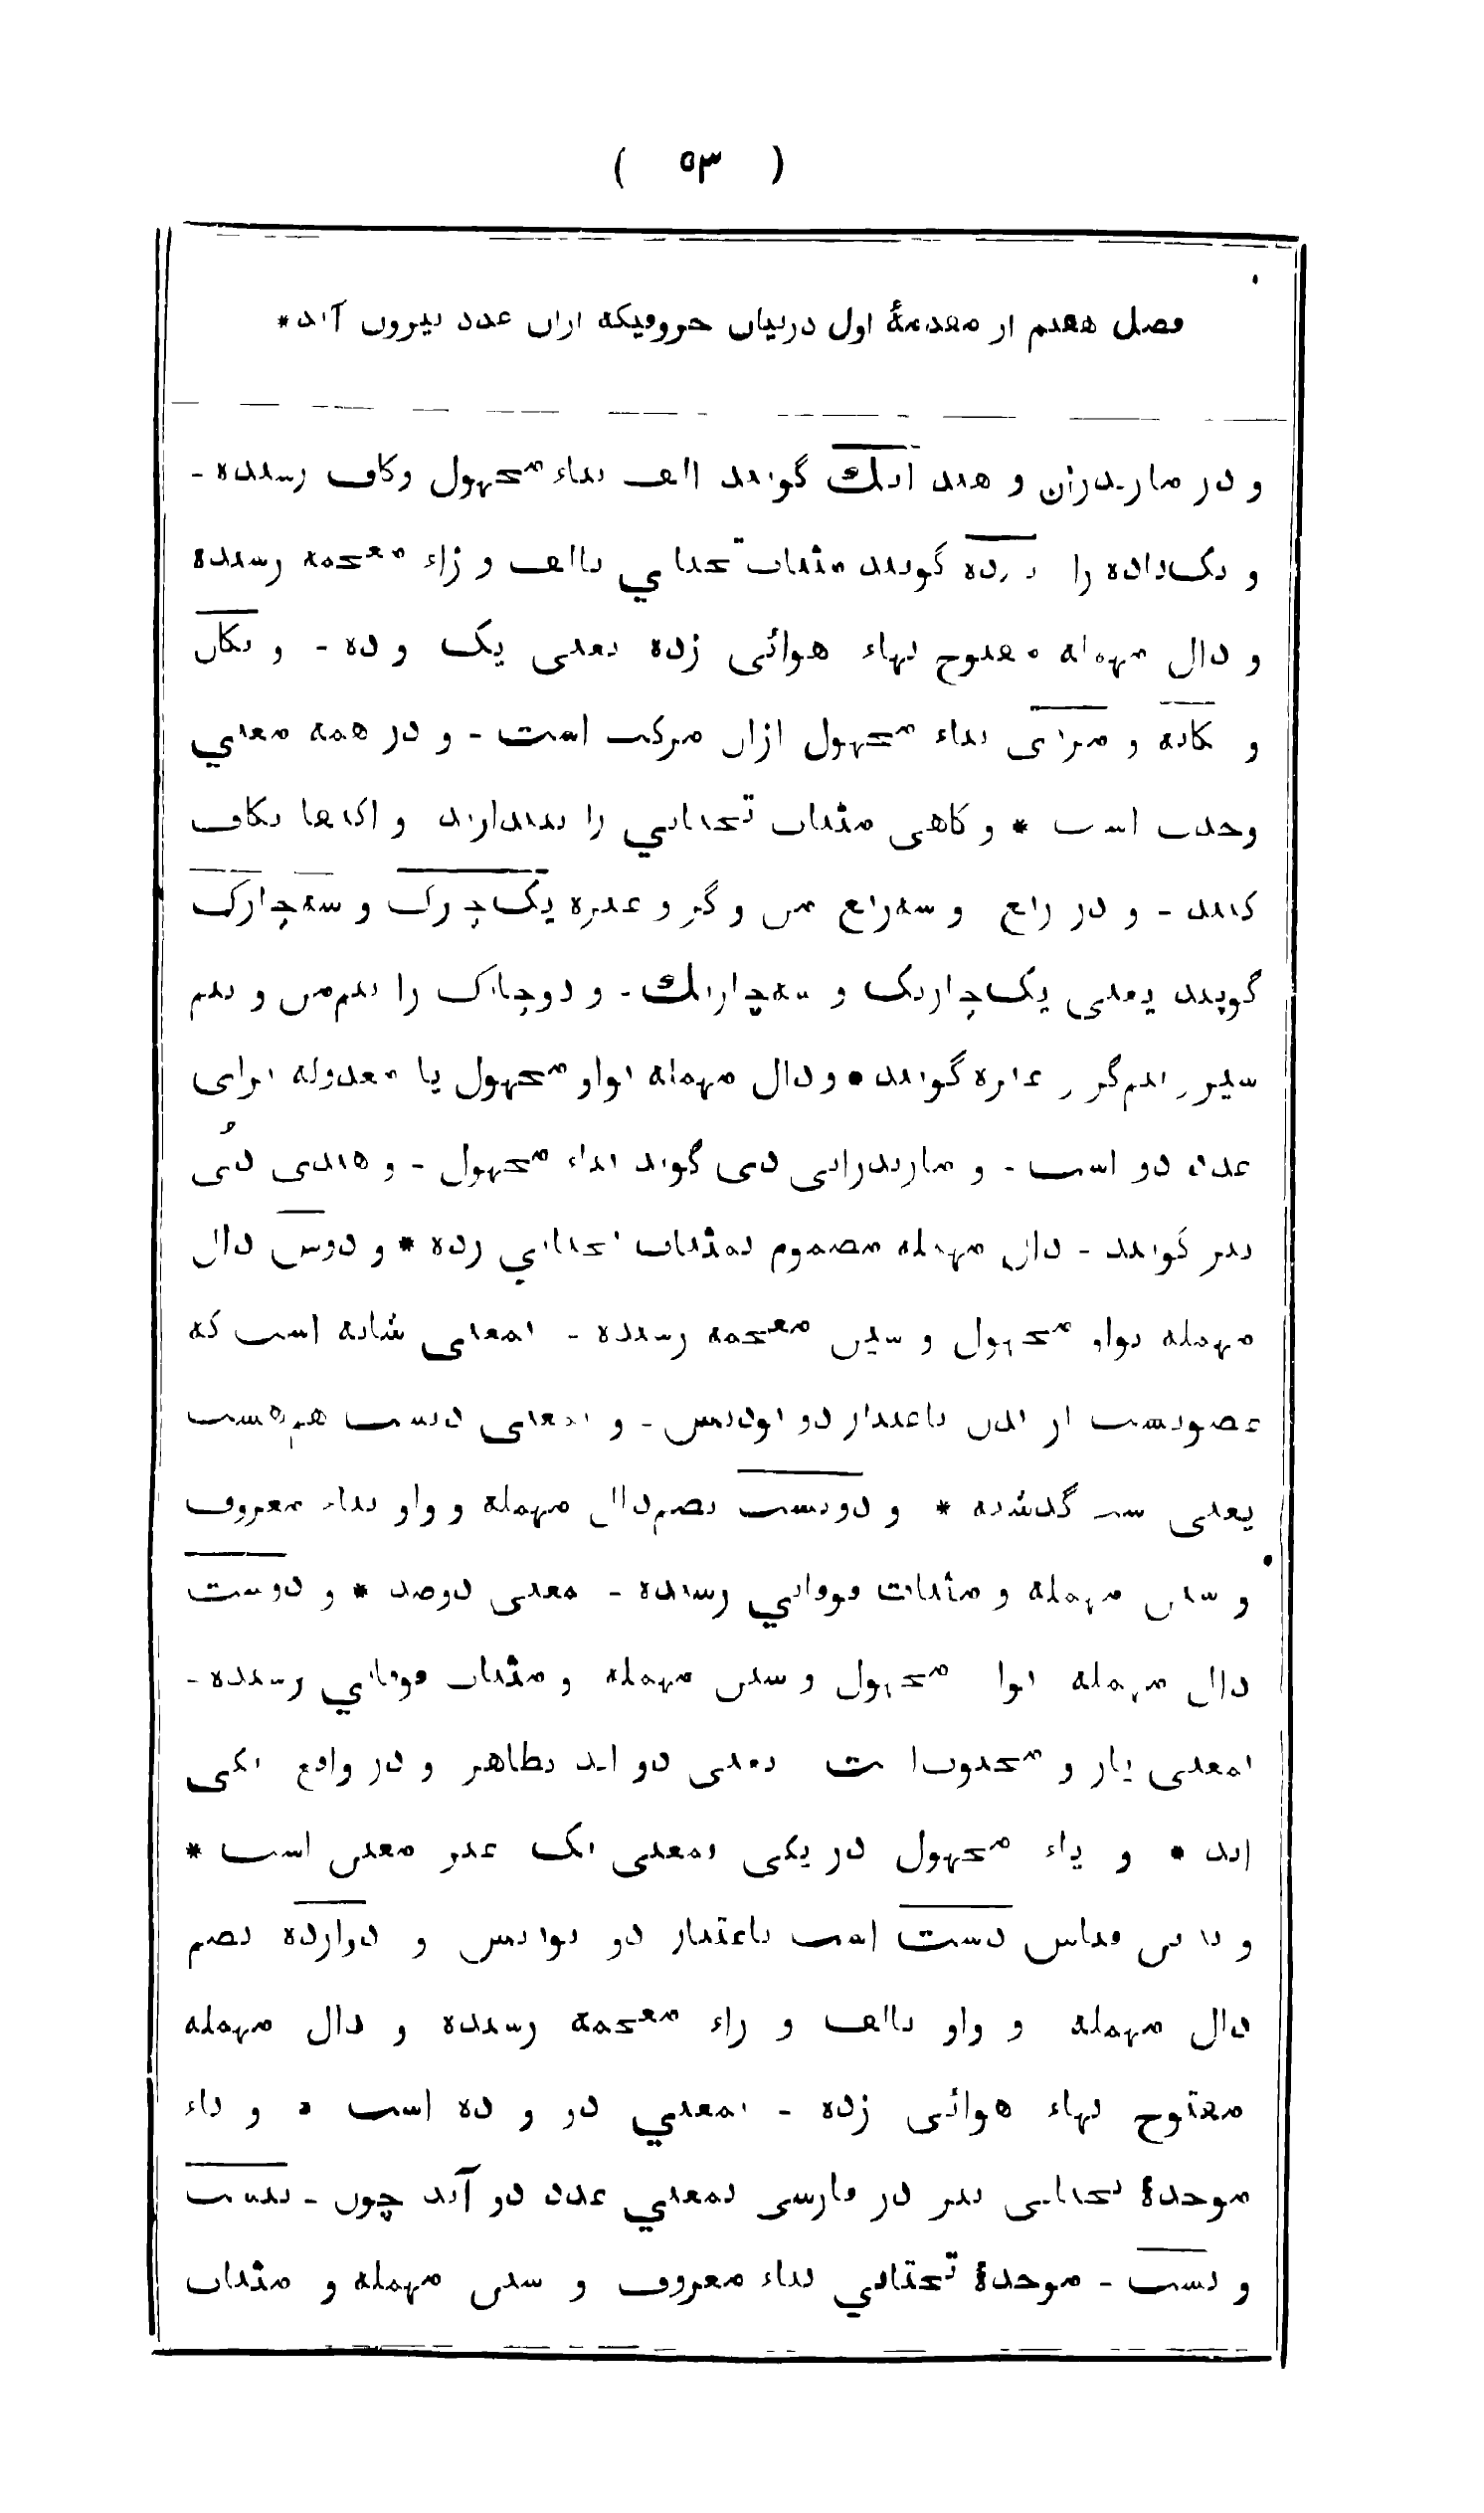 ( ٥٣ )
فصل هفدهم از مقدمهٔ اول دربیان حروفیکه ازان عدد بیرون آید*
و در مازندران و هند ایک گویند الف بیاء مجهول وکاف رسیده -
و یک‌داده را یازده گویند مثنات تحتاني بالف و زاء معجمه رسیده
و دال مهمله مفتوح بهاء هوائی زده یعنی یک و ده - و یکان
و یگانه و بیاء مجهول ازان مرکب است - و در همه معني
وحدت است * و گاهی مثنات تحتاني را بیندازند و اکتفا بکاف
کنند - و در ربع و سه‌ربع من و گز و غیره یک‌چارک و سه‌چارک
گویند یعنی یک‌چاریک و سه‌چاریک - و دوچارک را نیم‌من و نیم
سیر و نیم‌گز و غیره گویند * و دال مهمله بواو مجهول یا معدوله برای
عدد دو است - و مازندرانی دی گوید بیاء مجهول - و هندی دُی
نیز گویند - دال مهمله مضموم بمثنات تحتاني زده * و دوش دال
مهمله بواو مجهول و شین معجمه رسیده - بمعنی شانه است که
عضویست از بدن باعتبار دو بودنش - و بمعنی دیشب هم‌هست
یعنی شب گذشته * و دویست بضم‌دال مهمله و واو بیاء معروف
و سین مهمله و مثنات فوقاني رسیده - بمعنی دوصد * و دوست
دال مهمله بواو مجهول و سین مهمله و مثنات فوقاني رسیده -
بمعنی یار و محبوب است یعنی دو اند بظاهر و در واقع یکی
اند * و یاء مجهول در یکی بمعنی یک غیر معین است *
و باین قیاس دست است باعتبار دو بودنش و دوازده بضم
دال مهمله و واو بالف و زاء معجمه رسیده و دال مهمله
مفتوح بهاء هوائی زده - بمعني دو و ده است * و باء
موحدهٔ تحتانی نیز در فارسی بمعني عدد دو آید چون - بیست
و بست - موحدهٔ تحتاني بیاء معروف و سین مهمله و مثنات